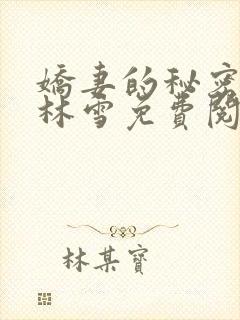 嬌妻的秘密
林雪免費閱
林某寶